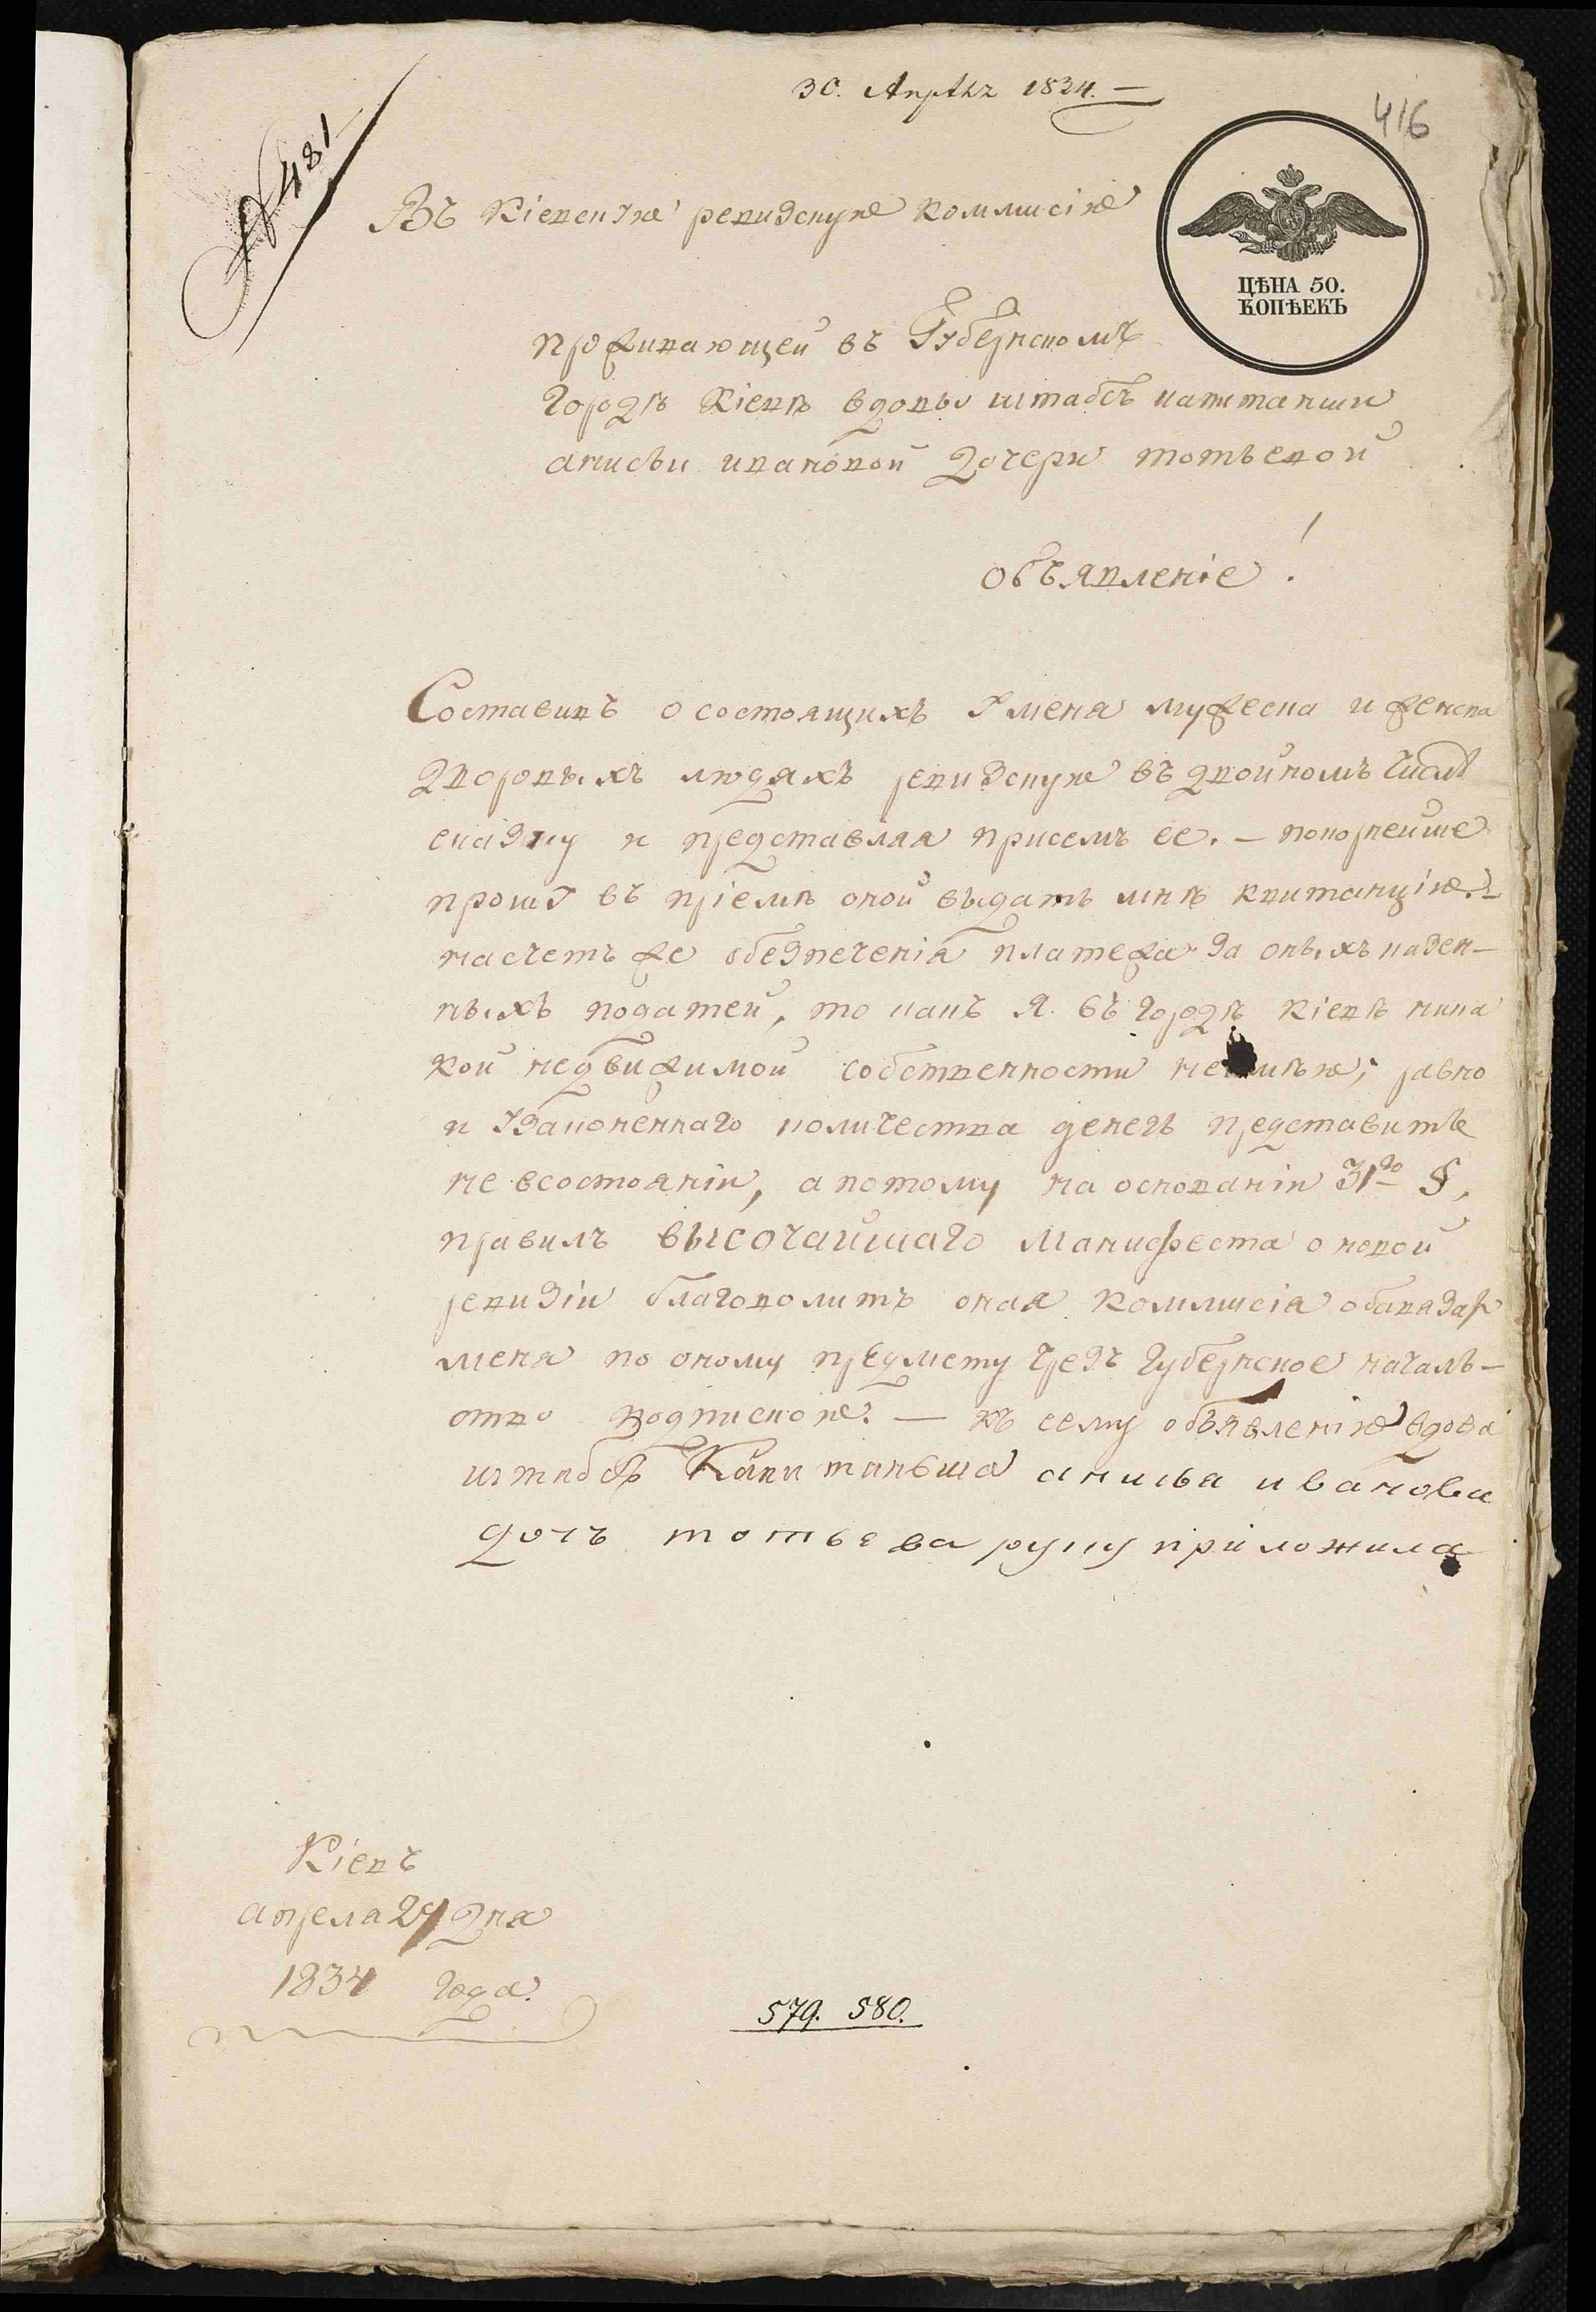 30. Апрѣля 1834.
416
№ 481
Въ Кіевскую ревизскую коммисію
ЦѢНА 50.
КОПѢЕКЪ
проживающей въ Губернскомъ
городѣ Кіевѣ вдовы штабсъ капитанши
анисьи ивановой дочери тотьевой
объявленіе!
Составивъ о состоящихъ у меня мужеска и женска
дворовыхъ людяхъ ревизскую въ двойномъ числѣ
сказку и представляя присемъ ее. – покорнейше
прошу въ пріемѣ оной выдать мнѣ квитанцію. –
насчетъ же обезпеченія платежа за оныхъ казен-
ныхъ податей, то какъ я въ городѣ Кіевѣ ника
кой недвижимой собственности неимѣю; равно
и узаконеннаго количества денегъ представить
не всостояніи, а потому на основаніи 31го §,
правилъ высочайшаго манифеста о новой
ревизіи благоволитъ оная коммисія обязать
меня по оному предмету чрезъ губернское началь-
ство подпискою. – къ сему объявленію вдова
штабсъ Капитаньша анисья иванова
дочъ тотьева руку приложила
Кіевъ
апреля 24 дня
1834 года.
579. 580.